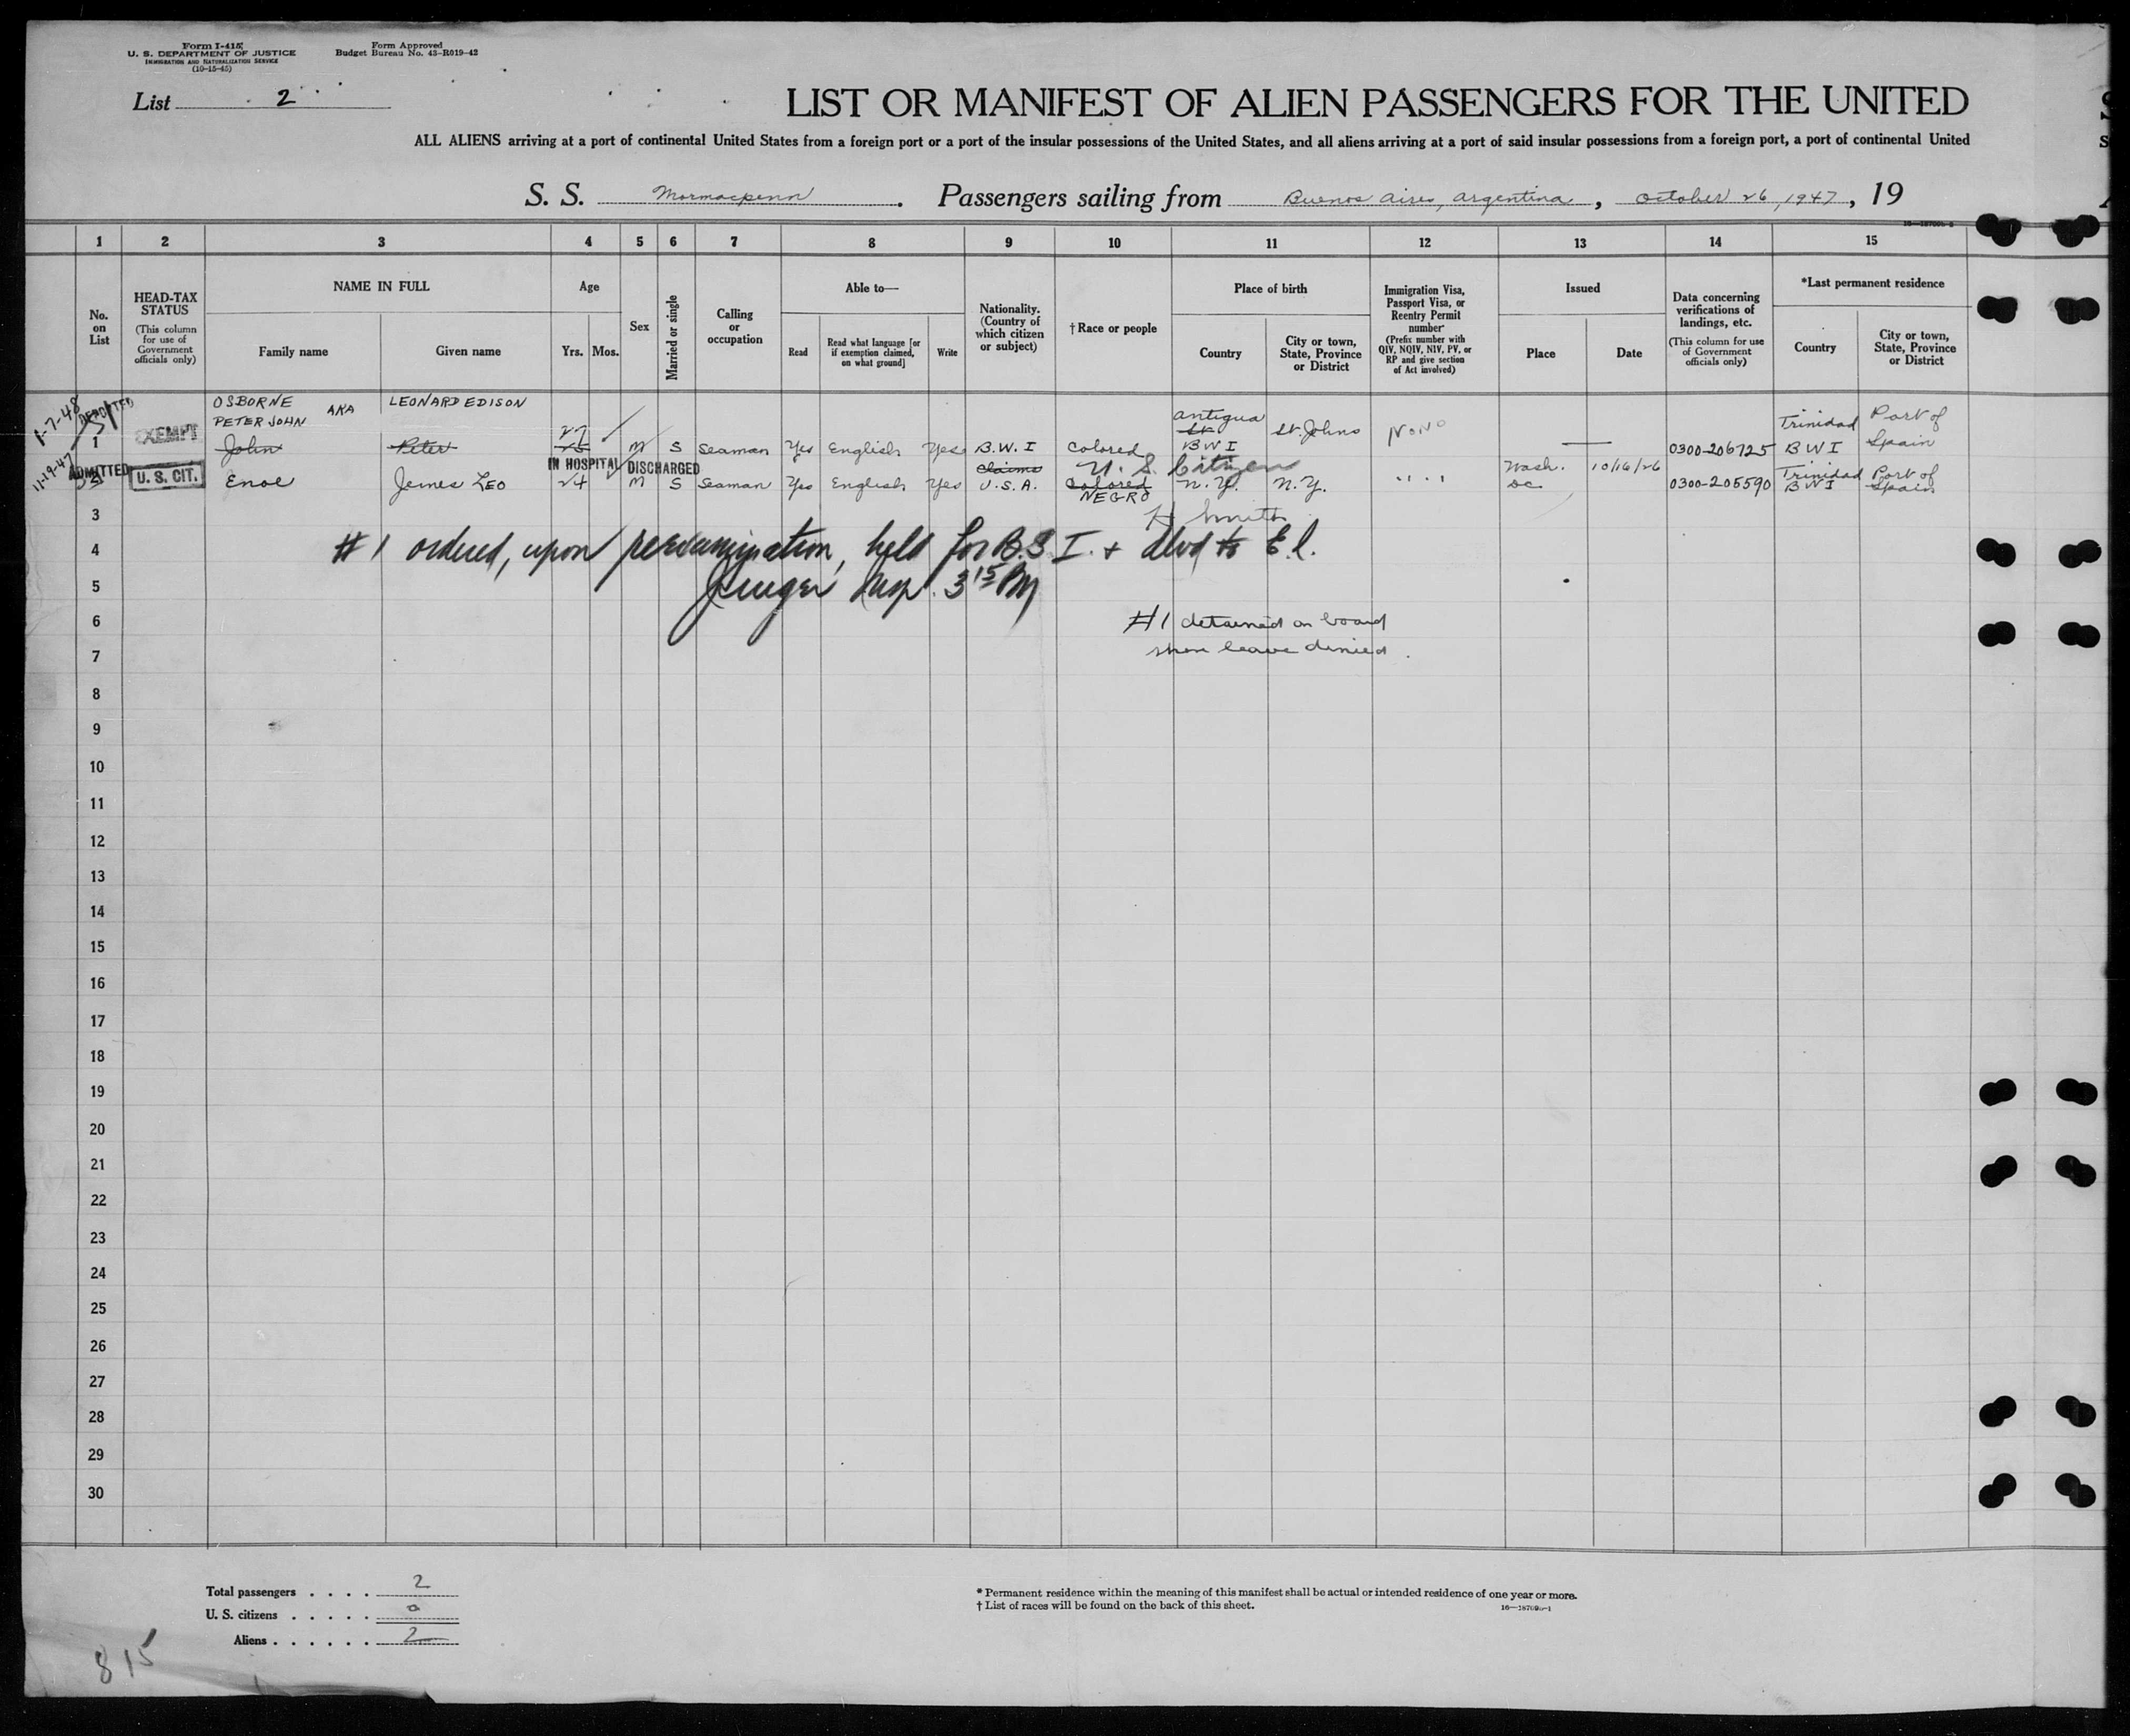 Form I-415
U. S. DEPARTMENT OF JUSTICE
IMMIGRATION AND NATURALIZATION SERVICE
(10-15-45)
Form Approved
Budget Bureau No. 43-R019-42
List 2
LIST OR MANIFEST OF ALIEN PASSENGERS FOR THE UNITED
ALL ALIENS arriving at a port of continental United States from a foreign port or a port of the insular possessions of the United States, and all aliens arriving at a port of said insular possessions from a foreign port, a port of continental United
S. S. Mormacpenn. Passengers sailing from Buenos Aires, Argentina, October 26, 1947, 19
1 2 3 4 5 6 7 8 9 10 11 12 13 14 15
No. on List
HEAD-TAX STATUS
(This column for use of Government officials only)
NAME IN FULL
Family name
Given name
Age
Yrs. Mos.
Sex
Married or single
Calling or occupation
Able to—
Read
Read what language [or if exemption claimed, on what ground]
Write
Nationality. (Country of which citizen or subject)
†Race or people
Place of birth
Country
City or town, State, Province or District
Immigration Visa, Passport Visa, or Reentry Permit number
(Prefix number with QIV, NQIV, NIV, PV, or RP and give section of Act involved)
Issued
Place
Date
Data concerning verifications of landings, etc.
(This column for use of Government officials only)
*Last permanent residence
Country
City or town, State, Province or District
1-7-48 DEPORTED
OSBORNE AKA LEONARD EDISON
PETER JOHN
1 EXEMPT John Peter 27 M S Seaman Yes English Yes B.W.I Colored Antigua St. BWI St. Johns NONO 0300-206725 Trinidad BWI Port of Spain
IN HOSPITAL DISCHARGED
Claims U. S. Citizen
11-19-47 ADMITTED U. S. CIT. Enoe James LEO 24 M S Seaman Yes English Yes U.S.A. Colored NEGRO N.Y. N.Y. " " Wash. DC 10/16/26 0300-205590 Trinidad BWI Port of Spain
H Smith
3
4
# 1 ordered, upon reexamination, held for B.S.I. + dlvd to E.I.
5
Insp. 3 15 PM
6
#1 detained on board
7
shore leave denied.
8
9
10
11
12
13
14
15
16
17
18
19
20
21
22
23
24
25
26
27
28
29
30
Total passengers . . . . 2
U. S. citizens . . . . . 0
Aliens . . . . . . 2
* Permanent residence within the meaning of this manifest shall be actual or intended residence of one year or more.
† List of races will be found on the back of this sheet.
815